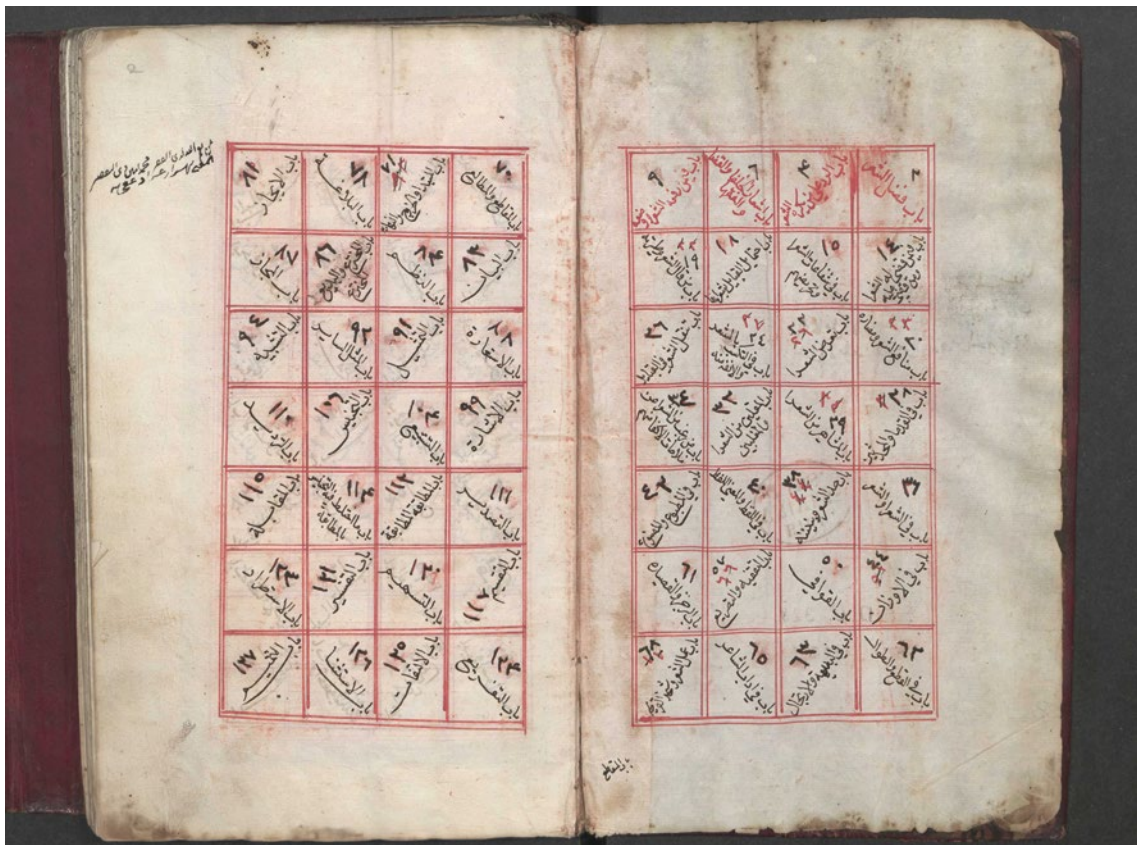 ٢ باب فضل الشعر
٤ باب في الرد على من يكره الشعر
٦ باب اشعار الخلفا والقضاة والفقها
٩ باب من رفعه الشعر ومن وضعه
١٤ باب من قضى له الشعر ومن قضى عليه
١٥ باب في شفاعات الشعرا وتحريضهم
١٨ باب احتما القبايل بشعرائها
١٩ باب من فال الشعر وطيرته
باب منافع الشعر ومضاره
باب تعرض الشعرا
باب التكسب بالشعر والانفة منه
٢٦ باب تنقل الشعر في القبايل
باب في القدما والمحدثين
٢٩ باب المشاهير من الشعرا
٣٣ باب المقلين من الشعرا والمغلبين
باب من رغب من الشعرا عن ملاحاة الاكفا
٣٦ باب في الشعرا والشعر
٣٩ باب حد الشعر وبنيته
٤٠ باب في اللفظ والمعنى
٤٢ باب في المطبوع والمصنوع
٤٤ باب في الاوزان
٥٠ باب القوافي
٥٧ باب التقفية والتصريع
٦١ باب الرجز والقصيد
٦٢ باب في القطع والطوال
٦٣ باب في البديهة والارتجال
٦٥ باب في اداب الشاعر
٦٨ باب عمل الشعر وشحذ القريحة
باب المقاطع
٧٠ باب المقاطع والمطالع
باب المبدا والخروج والنهاية
٧٨ باب البلاغة
٨١ باب الايجاز
٨٣ باب البيان
٨٤ باب النظم
٨٦ باب المخترع والبديع
٨٧ باب المجاز
٨٨ باب الاستعارة
٩١ باب التمثيل
٩٢ باب المثل الساير
٩٤ باب التشبيه
٩٩ باب الاشارة
١٠٤ باب التتبيع
١٠٦ باب التجنيس
١١٠ باب الترديد
١١١ باب التصدير
١١٢ باب المطابقة
١١٤ باب ما اختلط فيه التجنيس بالمطابقة
١١٥ باب المقابلة
١١٧ باب التقسيم
١٢٠ باب التسهيم
١٢١ باب التفسير
١٢٣ باب الاستطراد
١٢٤ باب التفريع
١٢٥ باب الالتفات
١٢٦ باب الاستثنا
١٢٧ باب التتميم